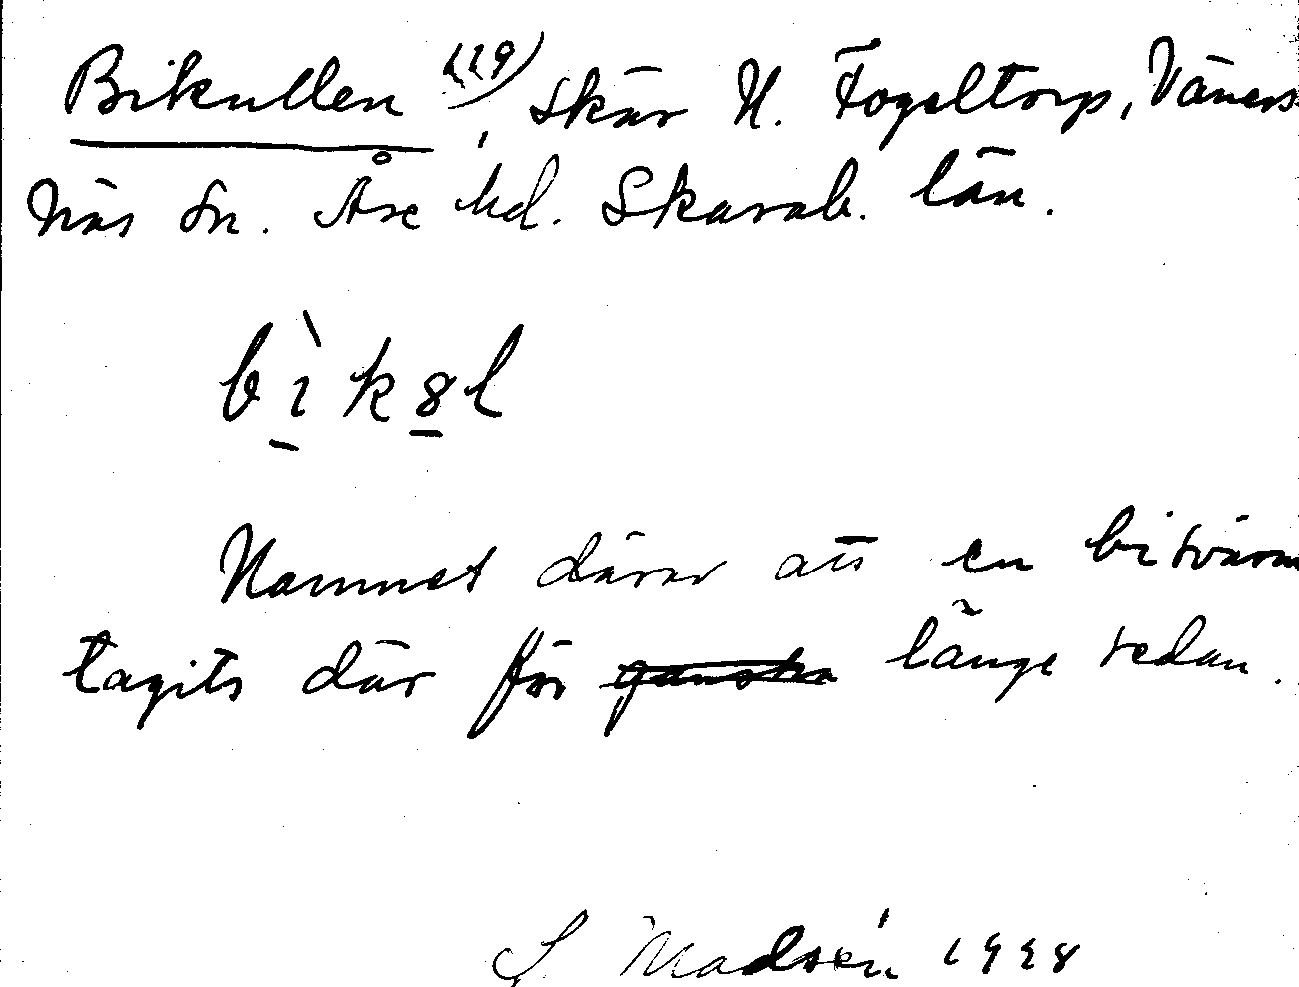 Bikullen (19), skär N. Fogeltorp, Väners
näs sn. Åse hd. Skarab. län.
bìk8l
Namnet därav att en bisvärm
tagits där för ganska länge sedan.
S Madsén 1928